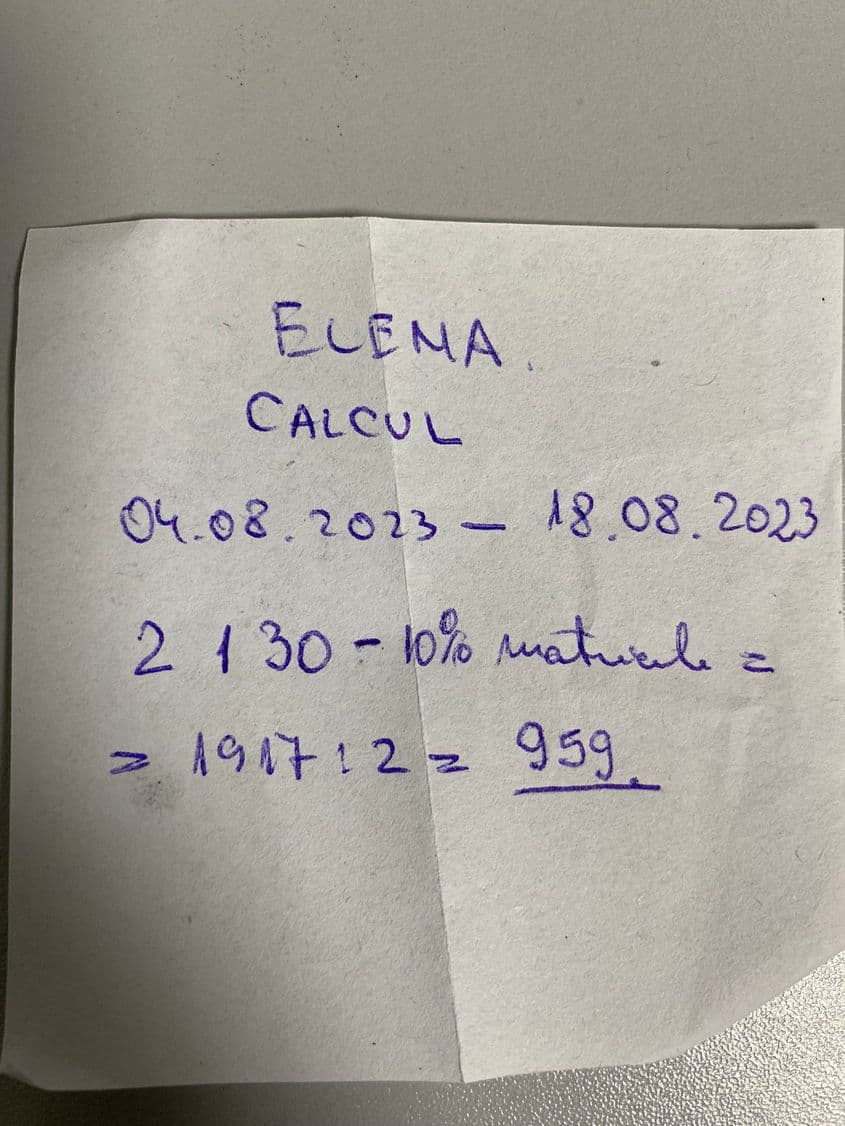 ELENA.
CALCUL
04.08.2023 – 18.08.2023
2 130 - 10% materiale =
= 1917 : 2 = 959.